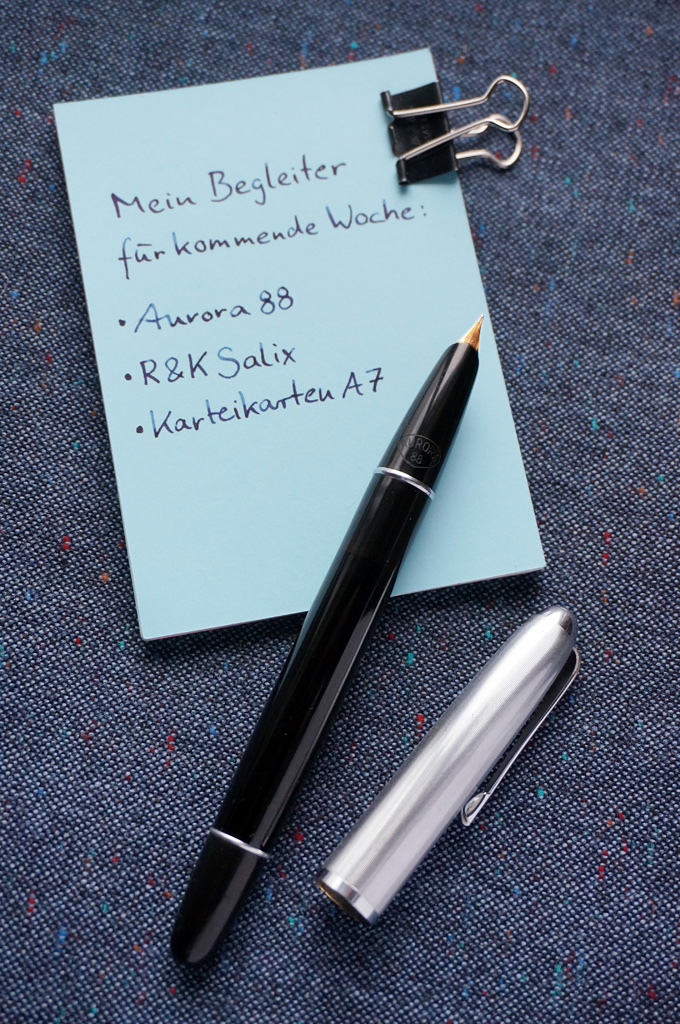 Mein Begleiter
für kommende Woche:
• Aurora 88
• R&K Salix
• Karteikarten A7
AURORA
88